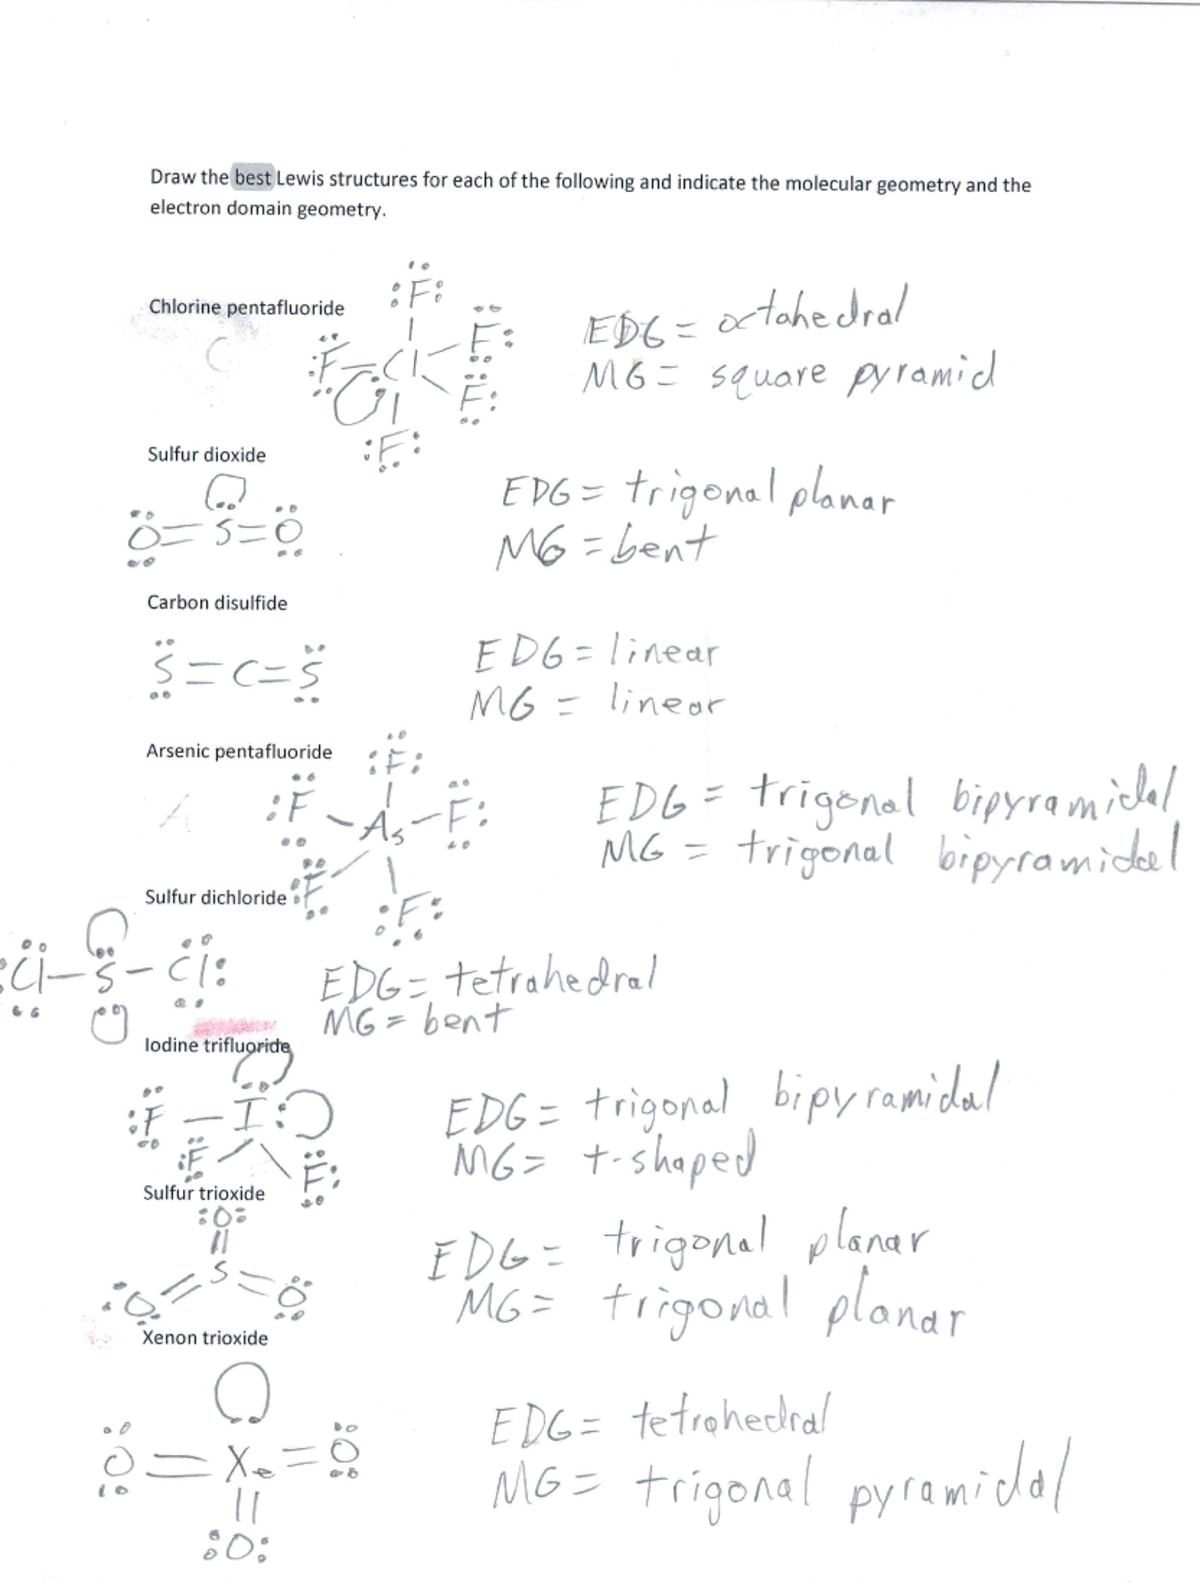 Draw the best Lewis structures for each of the following and indicate the molecular geometry and the
electron domain geometry.
Chlorine pentafluoride
F
F Cl F
F
F
EDG = octahedral
MG = square pyramid
Sulfur dioxide
O=S=O
EDG = trigonal planar
MG = bent
Carbon disulfide
S=C=S
EDG = linear
MG = linear
Arsenic pentafluoride
F
F-As-F
F F
A
EDG = trigonal bipyramidal
MG = trigonal bipyramidal
Sulfur dichloride
Cl-S-Cl
EDG = tetrahedral
MG = bent
Iodine trifluoride
F-I
F F
EDG = trigonal bipyramidal
MG = t-shaped
Sulfur trioxide
O
S
O O
EDG = trigonal planar
MG = trigonal planar
Xenon trioxide
O=Xe=O
O
EDG = tetrahedral
MG = trigonal pyramidal